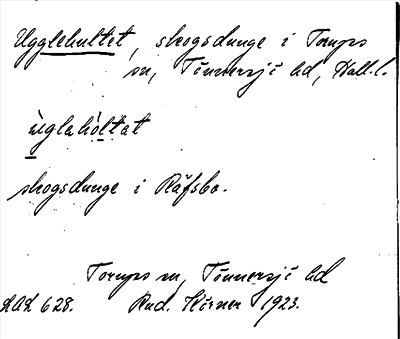 Ugglehultet, skogsdunge i Torups
sn, Tönnersjö hd, Hall. l.
ùglahòltat
skogsdunge i Räfsbo.
Torups sn, Tönnersjö hd
LAL 628. Rud. Körner 1923.